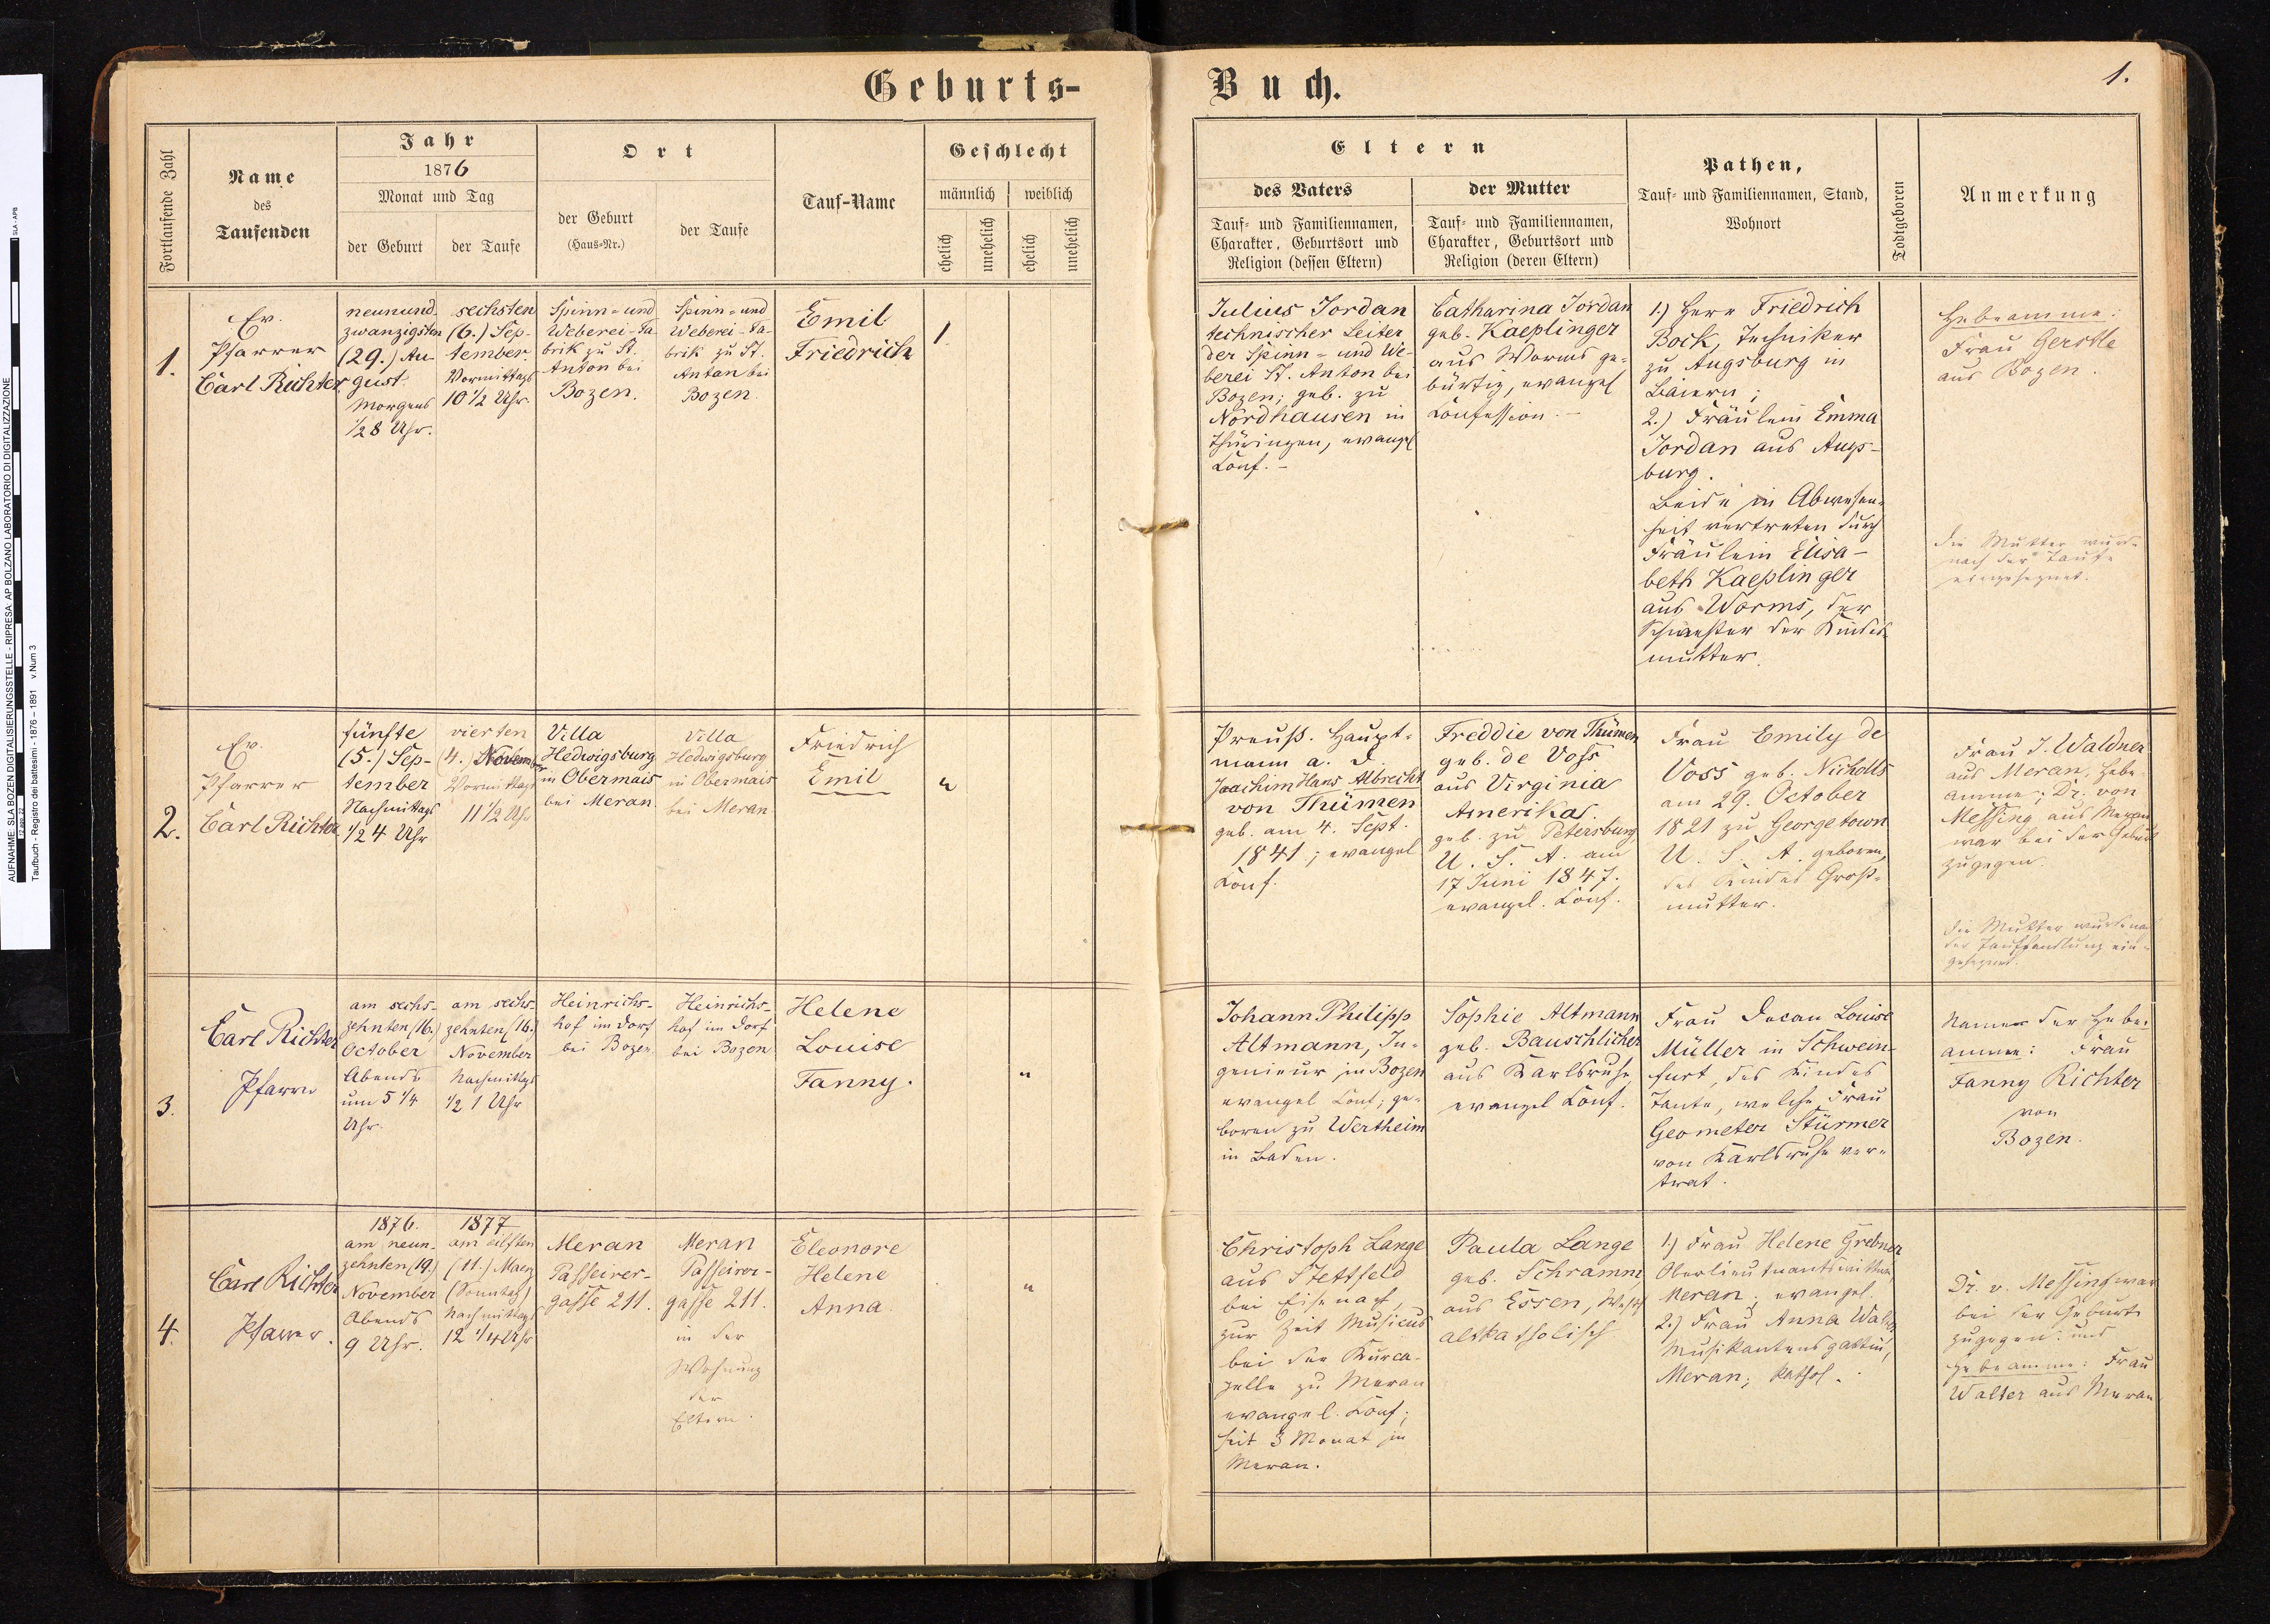 Geburts-
Buch.
1.
Fortlaufende Zahl
Name
des
Taufenden
Jahr
1876
Monat und Tag
der Geburt
der Taufe
Ort
der Geburt
(Haus-Nr.)
der Taufe
Tauf-Name
Geschlecht
männlich
weiblich
ehelich
unehelich
ehelich
unehelich
Eltern
des Vaters
Tauf- und Familiennamen,
Charakter, Geburtsort und
Religion (dessen Eltern)
der Mutter
Tauf- und Familiennamen,
Charakter, Geburtsort und
Religion (deren Eltern)
Pathen,
Tauf- und Familiennamen, Stand,
Wohnort
Todtgeboren
Anmerkung
1.
Ev.
Pfarrer
Carl Richter
neunund-
zwanzigsten
(29.) Au-
gust
Morgens
1/2 8 Uhr.
sechsten
(6.) Sep-
tember.
Vormittags
10 1/2 Uhr.
Spinn- und
Weberei-Fa-
brik zu St.
Anton bei
Bozen.
Spinn- und
Weberei-Fa-
brik zu St.
Anton bei
Bozen.
Emil
Friedrich
1
Julius Jordan
technischer Leiter
der Spinn- und We-
berei St. Anton bei
Bozen; geb. zu
Nordhausen in
Thüringen, evangel
Conf. -
Catharina Jordan
geb. Kaeplinger
aus Worms ge-
bürtig, evangel
Confession. -
1.) Herr Friedrich
Bock, Techniker
zu Augsburg in
Baiern;
2.) Fräulein Emma
Jordan aus Augs-
burg.
Beide in Abwesen-
heit vertreten durch
Fräulein Elisa-
beth Kaeplinger
aus Worms, der
Schwester der Kindes-
mutter.
Hebamme:
Frau Gerstle
aus Bozen.
Die Mutter wurde
nach der Taufe
eingesegnet.
2.
Ev.
Pfarrer
Carl Richter
fünfte
(5.) Sep-
tember
Nachmittags
1/2 4 Uhr
vierten
(4.) Novem
Vormittags
11 1/2 Uhr
Villa
Hedwigsburg
in Obermais
bei Meran.
Villa
Hedwigsburg
in Obermais
bei Meran
Friedrich
Emil
"
Preuß. Haupt-
mann a. D.
Joachim Hans Albrecht
von Thümen
geb. am 4. Sept.
1841; evangel
Conf.
Freddie von Thümen
geb. de Voss
aus Virginia
Amerikas.
geb. zu Petersburg
U. S. A. am
17 Juni 1847.
evangel. Conf.
Frau Emily de
Voss geb. Nicholls
am 29. October
1821 zu Georgetown
U. S. A. geboren,
des Kindes Groß-
mutter.
Frau J. Waldner
aus Meran, Hebe-
amme; Dr. von
Messing aus Meran
war bei der Geburt
zugegen.
Die Mutter wurde na
der Taufhandlung ein-
gesegnet.
3.
Carl Richter
Pfarrer
am sechs-
zehnten (16.)
October
Abends
um 5 1/4
Uhr.
am sechs-
zehnten (16.)
November
Nachmittags
1/2 1 Uhr
Heinrichs-
hof im Dorf
bei Bozen
Heinrichs-
hof im Dorf
bei Bozen
Helene
Louise
Fanny.
"
Johann Philipp
Altmann, In-
genieur in Bozen
evangel Conf; ge-
boren zu Wertheim
in Baden.
Sophie Altmann
geb. Bauschlicher
aus Karlsruhe
evangel Conf.
Frau Decan Louise
Müller in Schwein-
furt, des Kindes
Tante, welche Frau
Geometer Stürmer
von Karlsruhe ver-
trat.
Namen der Hebe-
amme: Frau
Fanny Richter
von
Bozen.
4.
Carl Richter
Pfarrer.
1876.
am neun-
zehnten (19.)
November
Abends
9 Uhr.
1877
am eilften
(11.) Maerz
(Sonntag)
Nachmittags
12 1/4 Uhr
Meran
Passeirer-
gasse 211.
Meran
Passeirer-
gasse 211.
in der
Wohnung
der
Eltern.
Eleonore
Helene
Anna.
"
Christoph Lange
aus Stettfeld
bei Eisenach,
zur Zeit Musicus
bei der Kurca-
pelle zu Meran
evangel. Conf;
seit 3 Monat in
Meran.
Paula Lange
geb. Schramm
aus Essen, Westf
altkatholisch
1.) Frau Helene Grebner
Oberlieutnantswittwe,
Meran; evangel.
2.) Frau Anna
Musikantensgattin,
Meran; kathol.
Dr. v. Messing war
bei der Geburt
zugegen. und
Hebeamme: Frau
Walter aus Meran
AUFNAHME: SLA BOZEN DIGITALISIERUNGSSTELLE - RIPRESA: AP BOLZANO LABORATORIO DI DIGITALIZZAZIONE
SLA - APB
Taufbuch - Registro dei battesimi - 1876 – 1891 v.Num 3